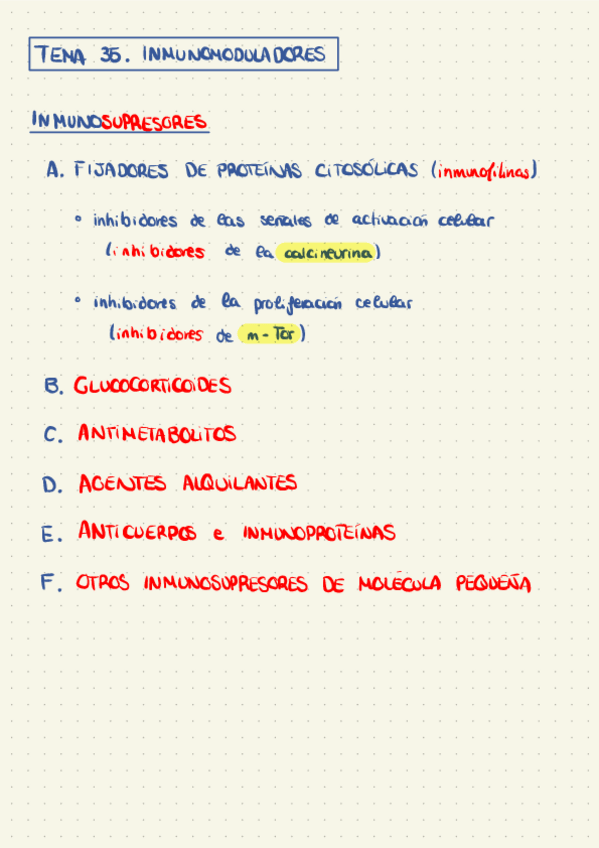 TEMA 35. INMUNOMODULADORES
INMUNOSUPRESORES
A. FIJADORES DE PROTEÍNAS CITOSÓLICAS (inmunofilinas)
° inhibidores de las señales de activación celular
(inhibidores de la calcineurina)
° inhibidores de la proliferación celular
(inhibidores de m-Tor)
B. GLUCOCORTICOIDES
C. ANTIMETABOLITOS
D. AGENTES ALQUILANTES
E. ANTICUERPOS e INMUNOPROTEÍNAS
F. OTROS INMUNOSUPRESORES DE MOLÉCULA PEQUEÑA